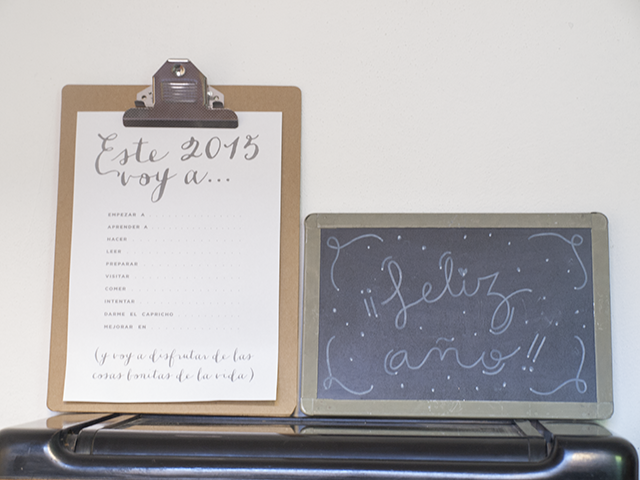 Este 2015
voy a...
EMPEZAR A
APRENDER A
HACER
LEER
PREPARAR
VISITAR
COMER
INTENTAR
DARME EL CAPRICHO
MEJORAR EN
(y voy a disfrutar de las
cosas bonitas de la vida)
¡¡feliz
año!!